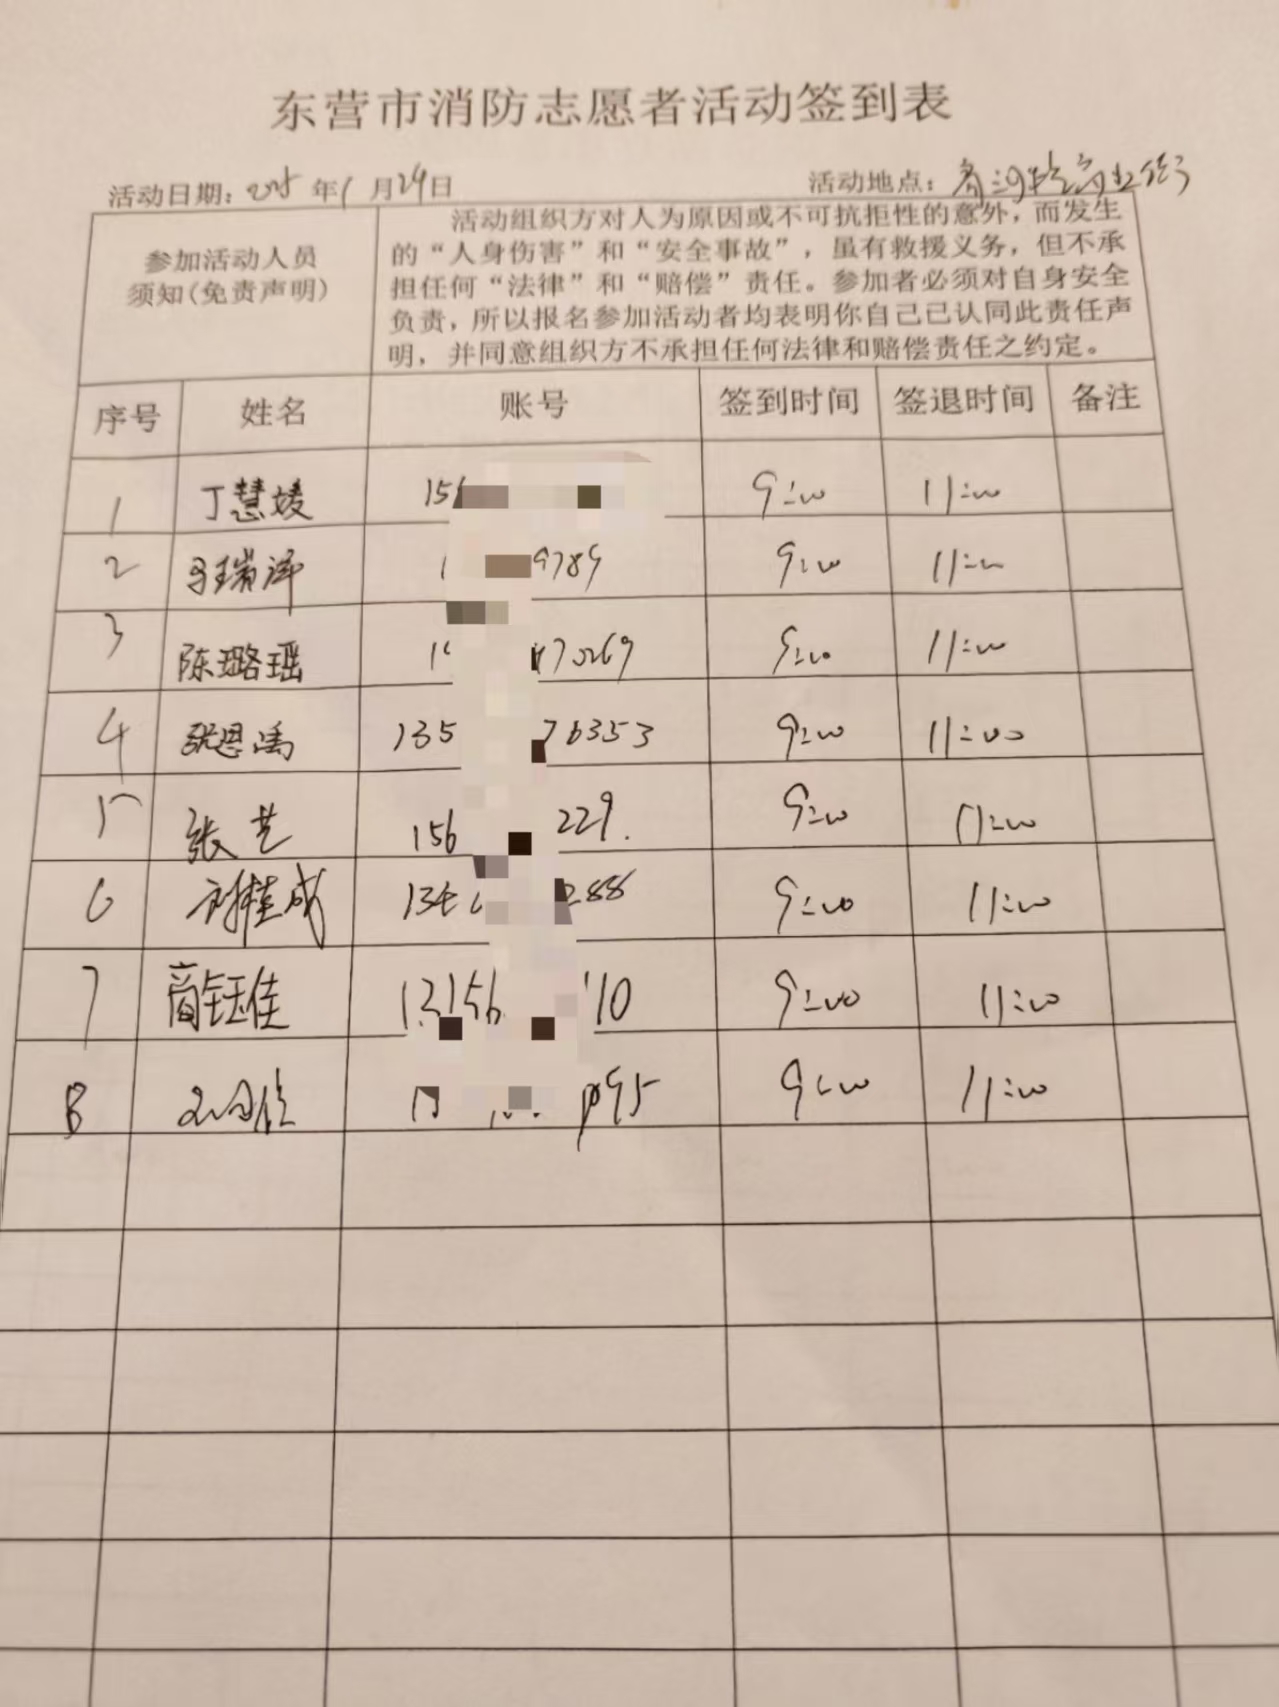 东营市消防志愿者活动签到表
活动日期：2025年1月29日 活动地点：商业街
参加活动人员
须知（免责声明）
活动组织方对人为原因或不可抗拒性的意外，而发生
的“人身伤害”和“安全事故”，虽有救援义务，但不承
担任何“法律”和“赔偿”责任。参加者必须对自身安全
负责，所以报名参加活动者均表明你自己已认同此责任声
明，并同意组织方不承担任何法律和赔偿责任之约定。
序号 姓名 账号 签到时间 签退时间 备注
1 丁慧媛 156 9:00 11:00
2 马瑞泽 1 9789 9:00 11:00
3 陈璐瑶 1 70269 9:00 11:00
4 张恩禹 135 76353 9:00 11:00
5 张艺 156 229. 9:00 11:00
6 桂成 134 288 9:00 11:00
7 钰佳 13156 10 9:00 11:00
8 13 095 9:00 11:00